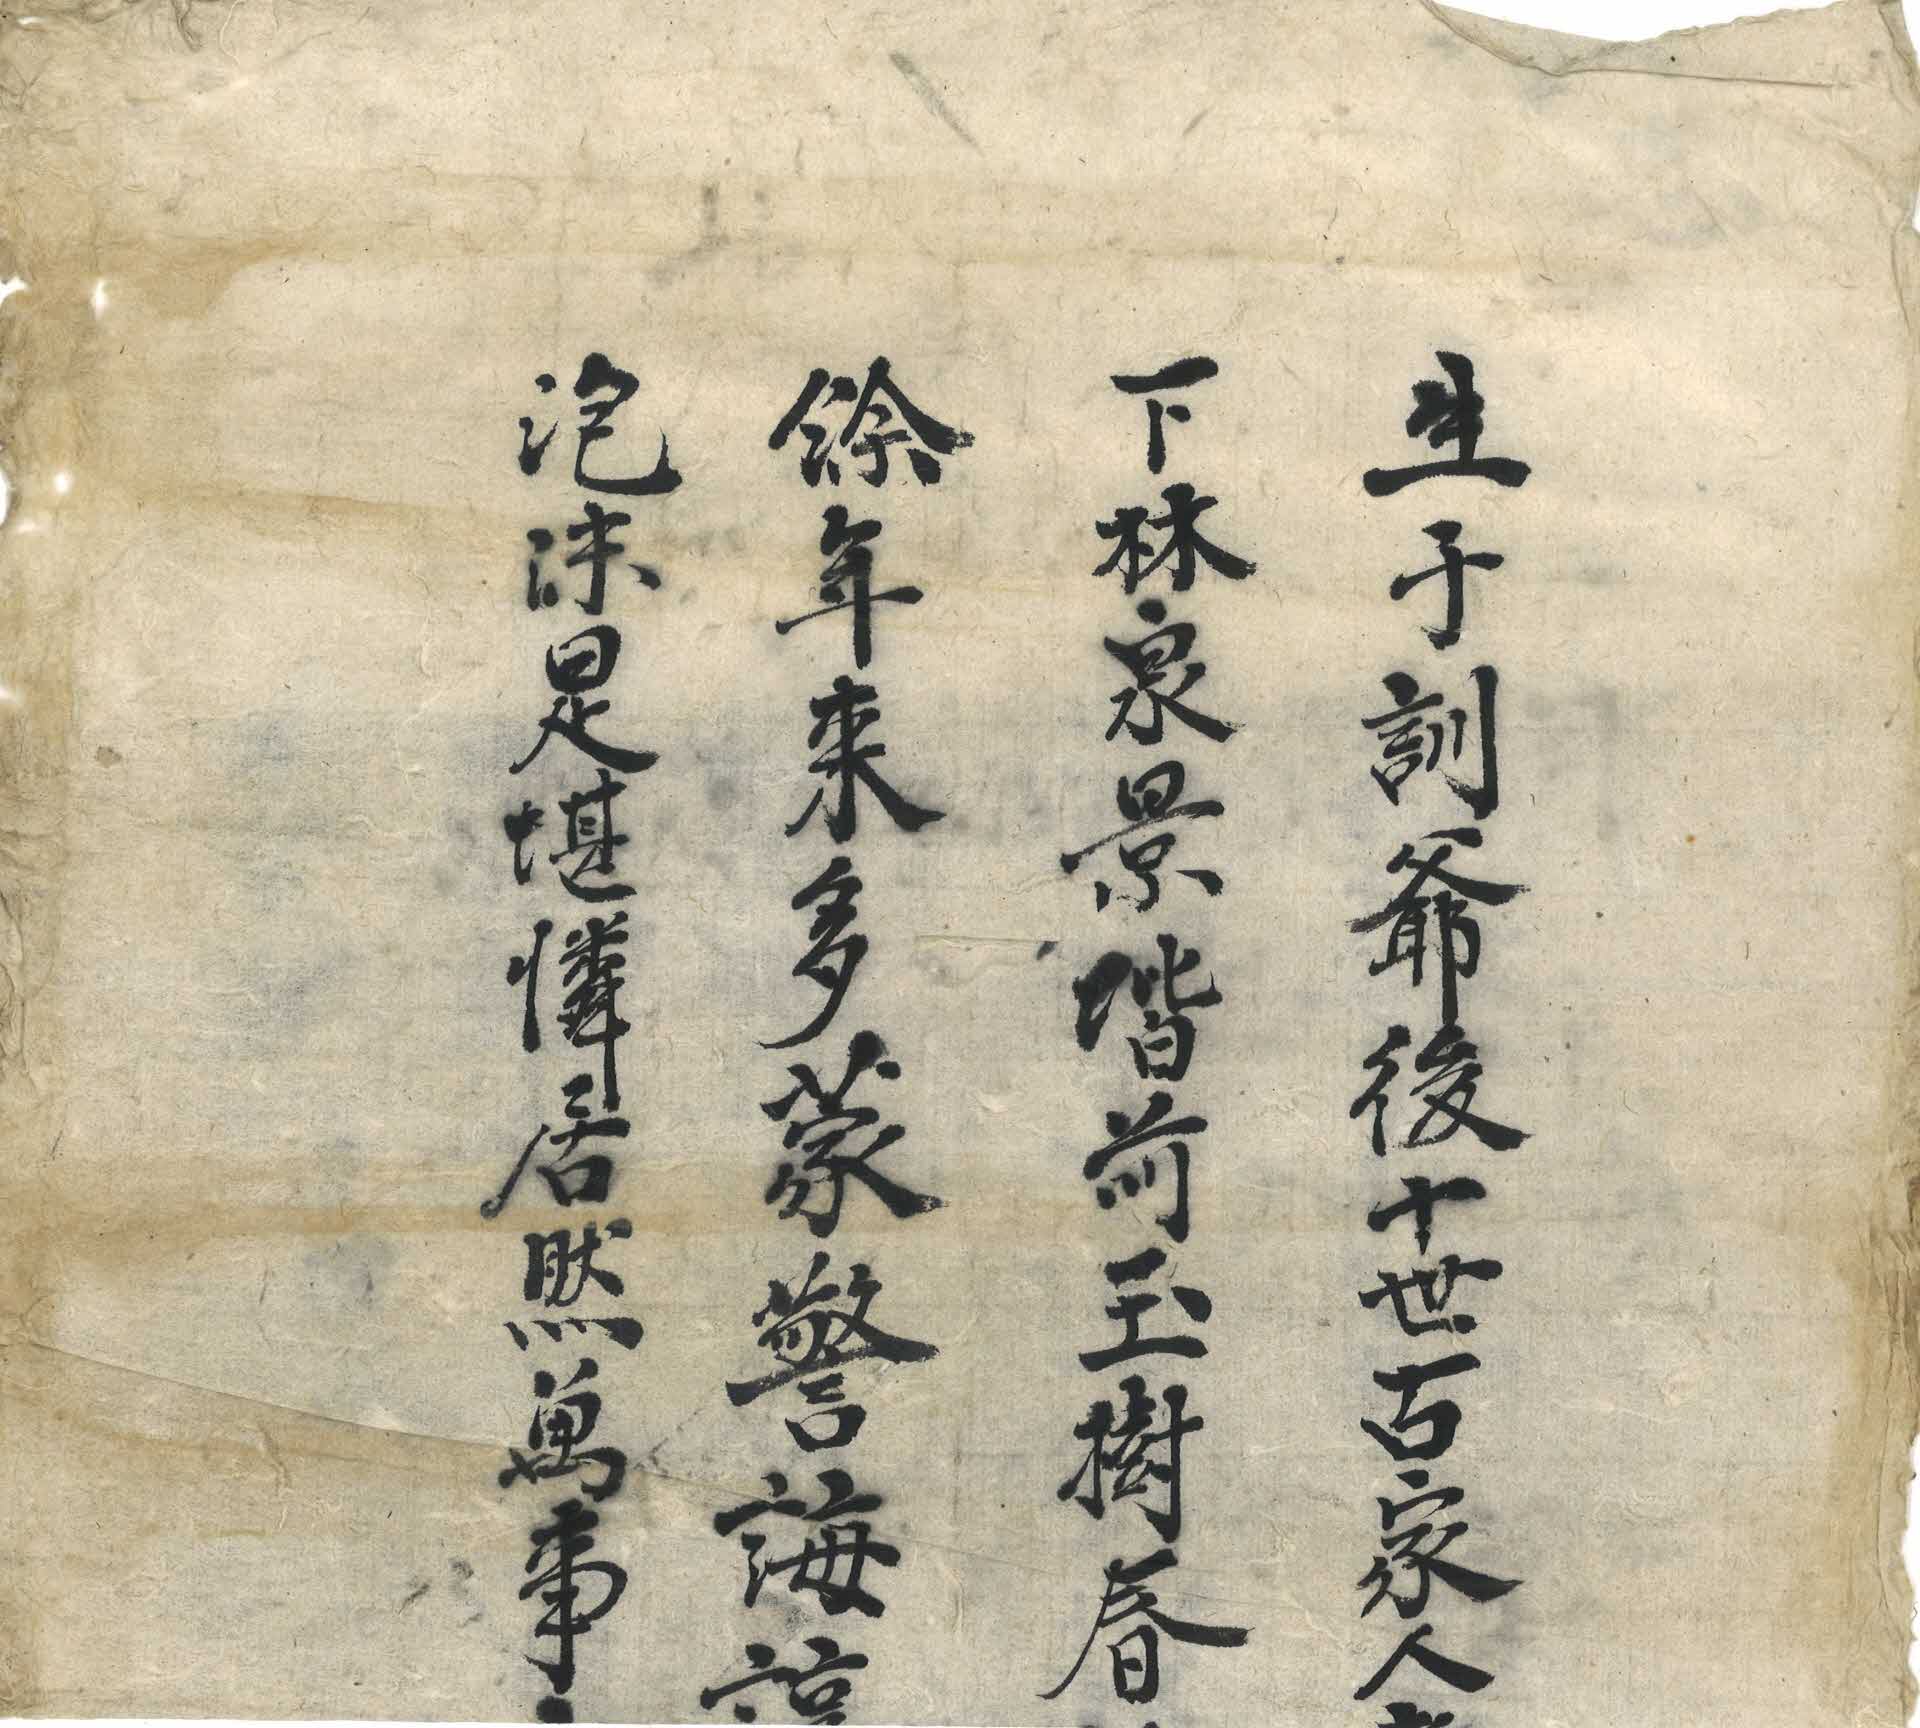 生于訓爺後十世古家人
下林泉景階前玉樹春
餘年来多蒙警誨諒
泡沫是堪憐居然萬事